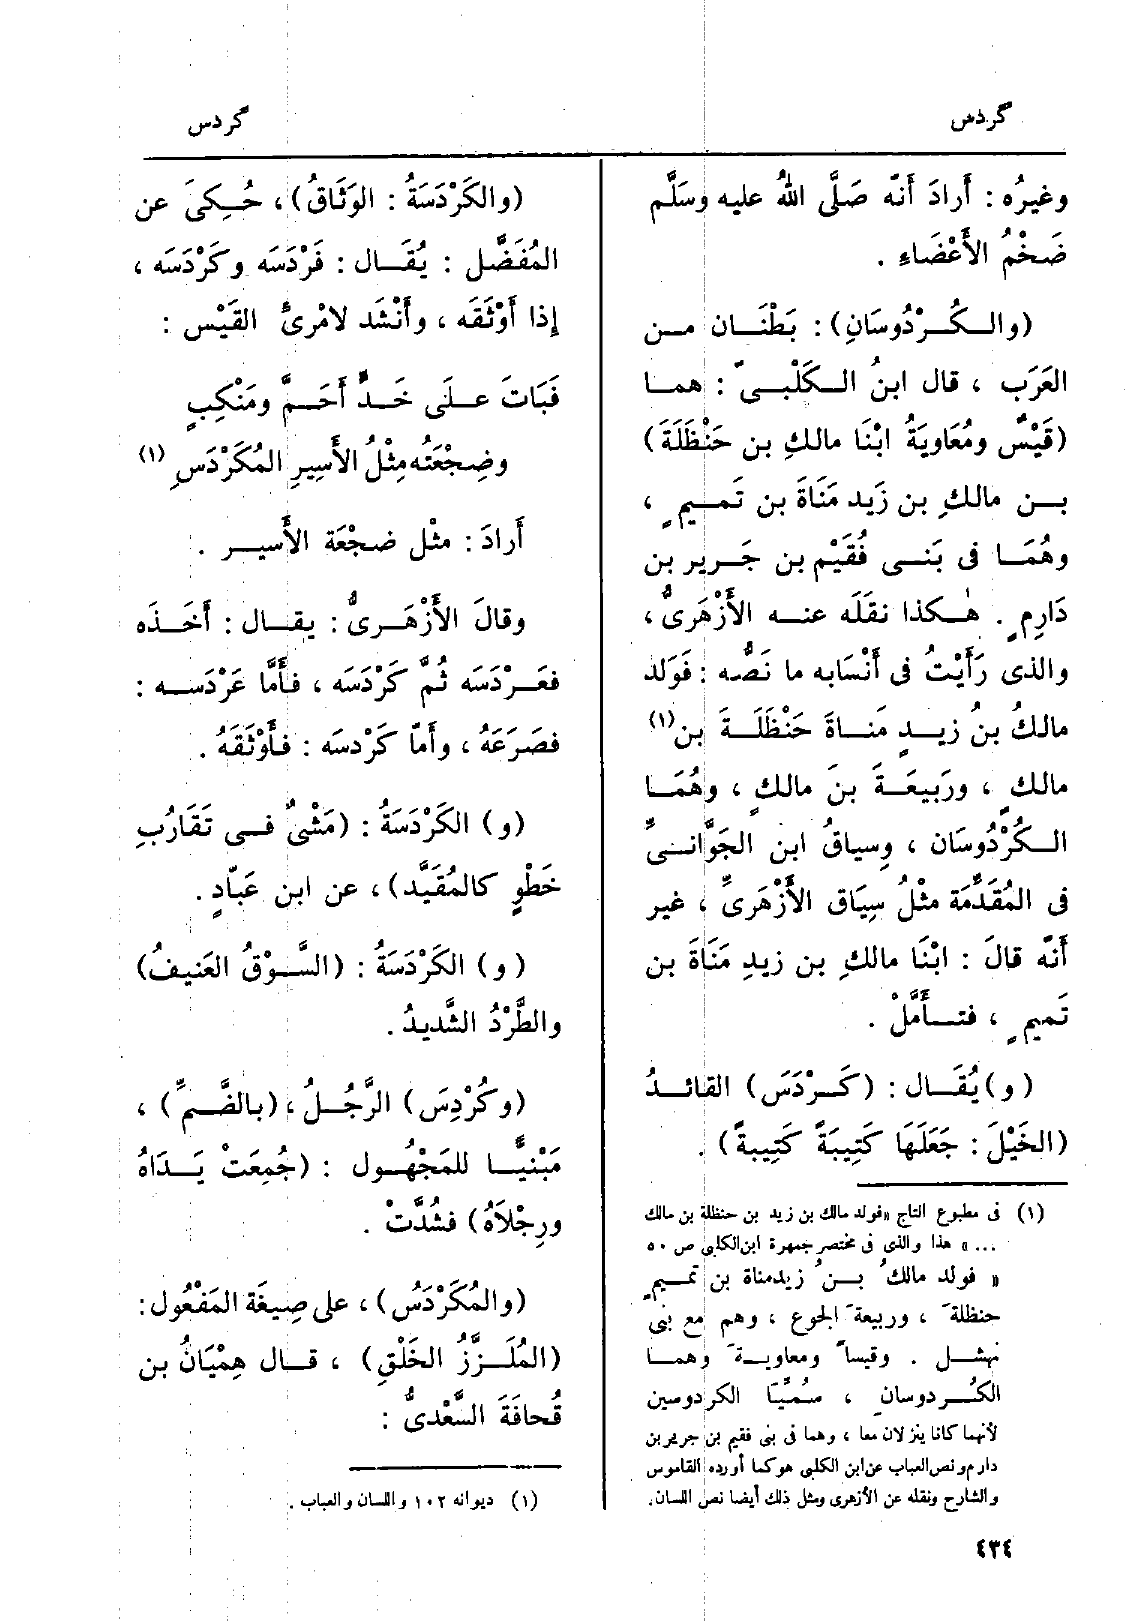 كردس
كردس
وغيرُه : أَرادَ أَنَّه صَلَّى اللهُ عليه وسَلَّم
ضَخْمُ الأَعْضَاءِ .
(والـكُـرْدُوسَانِ) : بَطْنَـان مـن
العَرَب ، قال ابنُ الـكَلْبـىّ : همـا
(قَيْسٌ ومُعَاوِيَةُ ابْنَا مالكِ بن حَنْظَلَةَ)
بـن مالكِ بن زَيد مَنَاةَ بن تَمـيم ٍ ،
وهُمَـا فى بَنـى فُقَيْم بن جَـرير بن
دَارِم ٍ . هٰـكذا نقَلَه عنـه الأَزْهَرىُّ ،
والذى رَأَيْتُ فى أَنْسَابه ما نَصُّه : فوَلد
مالكُ بنُ زيـدٍ مَنـاةَ حَنْظَلَـةَ بن(١)
مالكٍ ، ورَبيعَـةَ بنَ مالكٍ ، وهُمَـا
الـكُرْدُوسَان ، وسياقُ ابن الجَوَّانـىِّ
فى المُقَدِّمَة مثْلُ سِيَاق الأَزْهَرىِّ ، غير
أَنَّه قالَ : ابْنَا مالكِ بن زيدِ مَنَاةَ بن
تَميم ٍ ، فتـأَمَّلْ .
(و) يُقَـال : (كَـرْدَسَ) القائـدُ
(الخَيْلَ : جَعَلَهَا كَتِيبَةً كَتِيبةً) .
(١) فى مطبوع التاج «فولد مالك بن زيد بن حنظلة بن مالك
... » هذا والذى فى مختصر جمهرة ابن الكلبى ص ٥٠
« فولد مالكُ بـنُ زيدمناة بن تمـيم ٍ
حنظلةَ ، وربيعةَ الجوع ، وهم مع بنى
نهشـل . وقيساً ومعاويـةَ وهمـا
الكُـردوسانِ ، سُمِّيَا الكردوسين
لأنهما كانا ينزلان معا ، وهما فى بنى فقيم بن جرير بن
دارم ونص العباب عن ابن الكلبى هو كما أورده القاموس
والشارح ونقله عن الأزهرى ومثل ذلك أيضا نص اللسان.
(والكَرْدَسَةُ : الوَثَاقُ) ، حُـكِىَ عن
المُفَضَّل : يُقَـال : فَرْدَسَه وكَرْدَسَه ،
إذا أَوْثَقَه ، وأَنْشَد لامْرِئ القَيْس :
فَبَاتَ عـلَى خَـدٍّ أَحَـمَّ ومَنْكِبٍ
وضِجْعَتُه مِثْلُ الأَسِيرِ المُكَرْدَسِ (١)
أَرادَ : مثْل ضجْعَة الأَسيـر .
وقالَ الأَزْهَـرىُّ : يقـال : أَخَـذَه
فعَـرْدَسَه ثُمَّ كَرْدَسَه ، فأَمَّا عَرْدَسـه :
فصَرَعَهُ ، وأَمّا كَرْدسَه : فأَوْثَقَهُ .
(و) الكَرْدَسَةُ : (مَشْىٌ فـى تَقَارُبِ
خَطْوٍ كالمُقَيَّد) ، عن ابن عَبّادٍ .
(و) الكَرْدَسَةُ : (السَّـوْقُ العَنيفُ)
والطَّرْدُ الشَّديدُ .
(وكُرْدِسَ) الرَّجُـلُ ، (بالضَّـمِّ) ،
مَبْنيًّـا للمَجْهُـول : (جُمِعَتْ يَـدَاهُ
ورِجْلاَهُ) فشُدَّتْ .
(والمُكَرْدَسُ) ، على صِيغَة المَفْعُول :
(المُلَـزَّزُ الخَلْقِ) ، قـال هِمْيَانُ بن
قُحافَةَ السَّعْدىُّ :
(١) ديوانه ١٠٢ واللسان والعباب .
٤٣٤